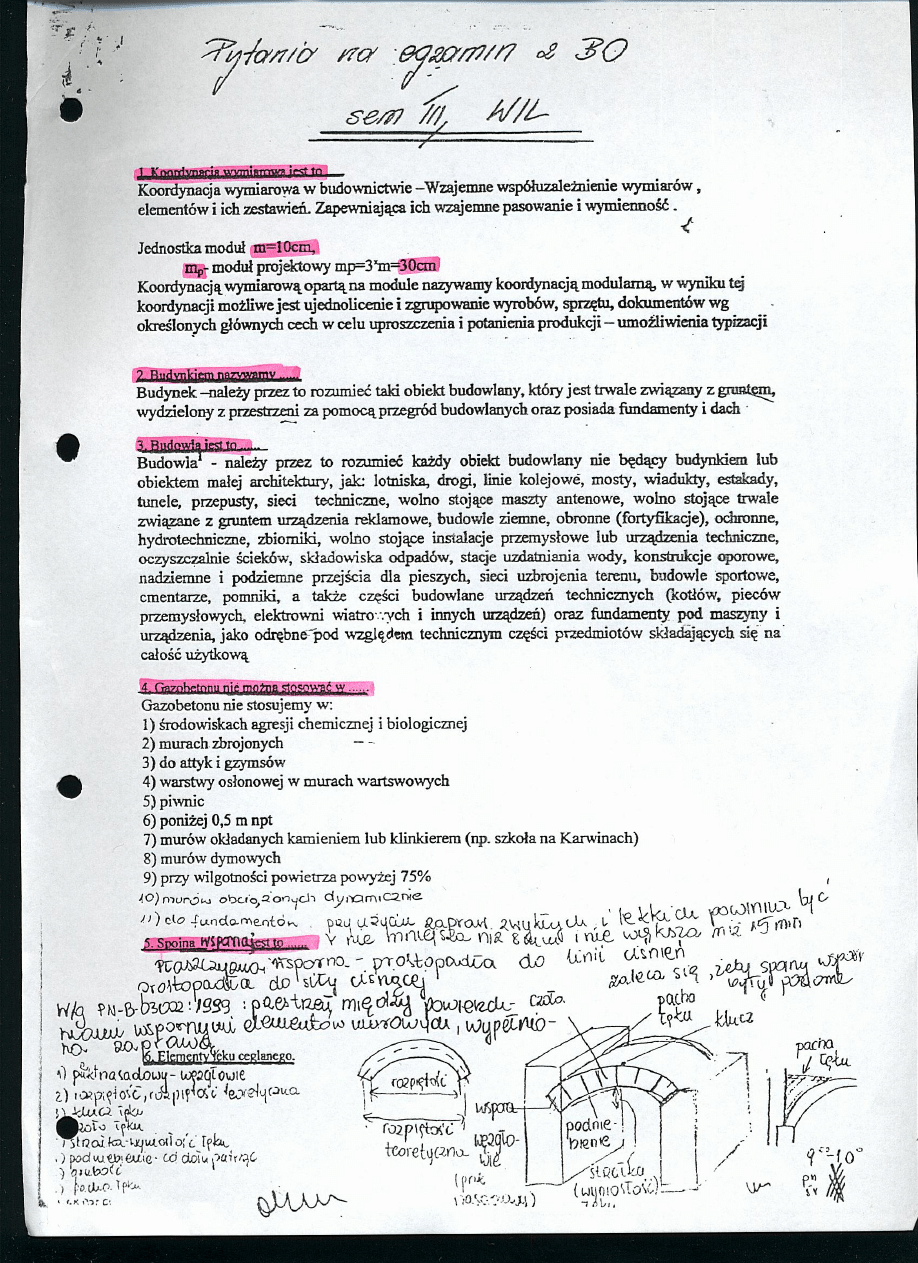 Pytania na egzamin z BO
sem III, WIL
1. Koordynacja wymiarowa jest to
Koordynacja wymiarowa w budownictwie –Wzajemne współuzależnienie wymiarów ,
elementów i ich zestawień. Zapewniająca ich wzajemne pasowanie i wymienność .
Jednostka moduł m=10cm,
mp- moduł projektowy mp=3*m=30cm
Koordynacją wymiarową opartą na module nazywamy koordynacją modularną, w wyniku tej
koordynacji możliwe jest ujednolicenie i zgrupowanie wyrobów, sprzętu, dokumentów wg
określonych głównych cech w celu uproszczenia i potanienia produkcji – umożliwienia typizacji
2. Budynkiem nazywamy ......
Budynek –należy przez to rozumieć taki obiekt budowlany, który jest trwale związany z gruntem,
wydzielony z przestrzeni za pomocą przegród budowlanych oraz posiada fundamenty i dach
3. Budowlą jest to ......
Budowla - należy przez to rozumieć każdy obiekt budowlany nie będący budynkiem lub
obiektem małej architektury, jak: lotniska, drogi, linie kolejowe, mosty, wiadukty, estakady,
tunele, przepusty, sieci techniczne, wolno stojące maszty antenowe, wolno stojące trwale
związane z gruntem urządzenia reklamowe, budowle ziemne, obronne (fortyfikacje), ochronne,
hydrotechniczne, zbiorniki, wolno stojące instalacje przemysłowe lub urządzenia techniczne,
oczyszczalnie ścieków, składowiska odpadów, stacje uzdatniania wody, konstrukcje oporowe,
nadziemne i podziemne przejścia dla pieszych, sieci uzbrojenia terenu, budowle sportowe,
cmentarze, pomniki, a także części budowlane urządzeń technicznych (kotłów, pieców
przemysłowych, elektrowni wiatrowych i innych urządzeń) oraz fundamenty pod maszyny i
urządzenia, jako odrębne pod względem technicznym części przedmiotów składających się na
całość użytkową
4. Gazobetonu nie można stosować w ......
Gazobetonu nie stosujemy w:
1) środowiskach agresji chemicznej i biologicznej
2) murach zbrojonych
3) do attyk i gzymsów
4) warstwy osłonowej w murach wartswowych
5) piwnic
6) poniżej 0,5 m npt
7) murów okładanych kamieniem lub klinkierem (np. szkoła na Karwinach)
8) murów dymowych
9) przy wilgotności powietrza powyżej 75%
10) murów obciążonych dynamicznie
11) do fundamentów
przy użyciu zapraw zwykłych i lekkich powinna być
nie mniejsza niż 8mm i nie większa niż 15 mm
5. Spoina wsporna jest to ......
Płaszczyzna wsporna - prostopadła do linii ciśnień
prostopadła do siły cisnącej
zaleca się, żeby spoiny wsporn
były poziome
W/g PN-B-03002:1999 : przestrzeń między powierzch-
niami wspornymi elementów murowych, wypełnio-
na zaprawą
6. Elementy łęku ceglanego.
1) punkt nasadowy - wezgłowie
2) rozpiętość, rozpiętość teoretyczna
klucz łęku
czoło łęku
strzałka - wyniosłość łęku
podniebienie - od dołu patrząc
grubość
pacha łęku
rozpiętość
rozpiętość
teoretyczna
czoło
pacha
łęku
klucz
wspora
wezgło-
wie
podnie-
bienie
strzałka
(wyniosłość)
pacha
łęku